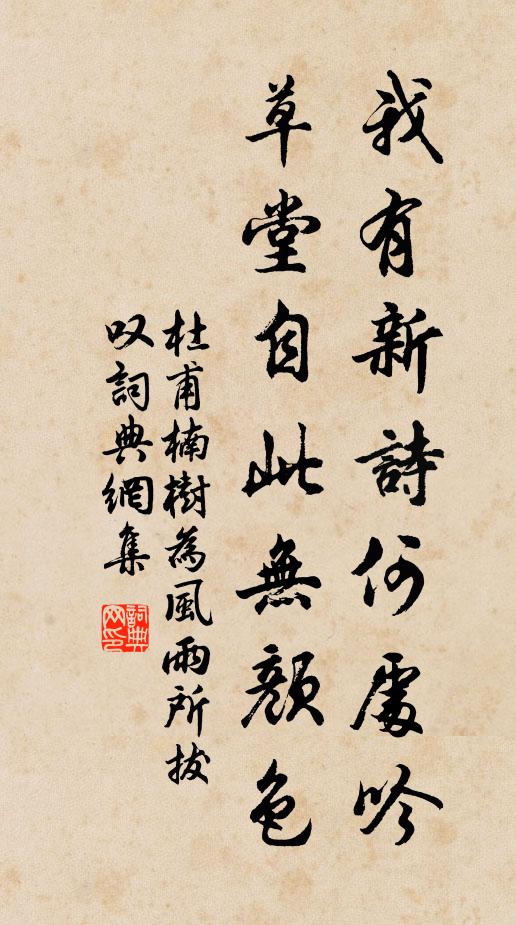 我有新詩何處吟
草堂自此無顏色
杜甫楠樹為風雨所拔
叹詞典網集
詞典網印